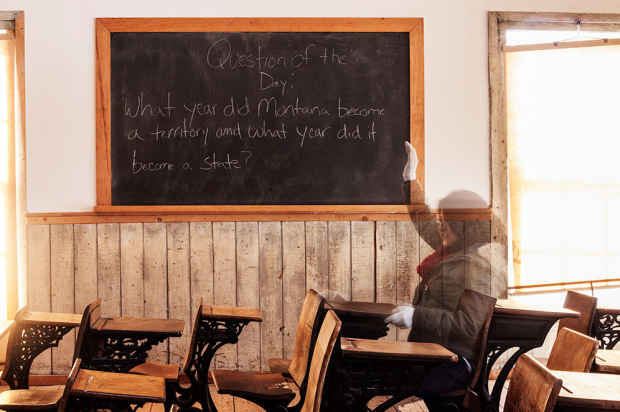 Question of the
Day:
What year did Montana become
a territory and what year did it
become a state?